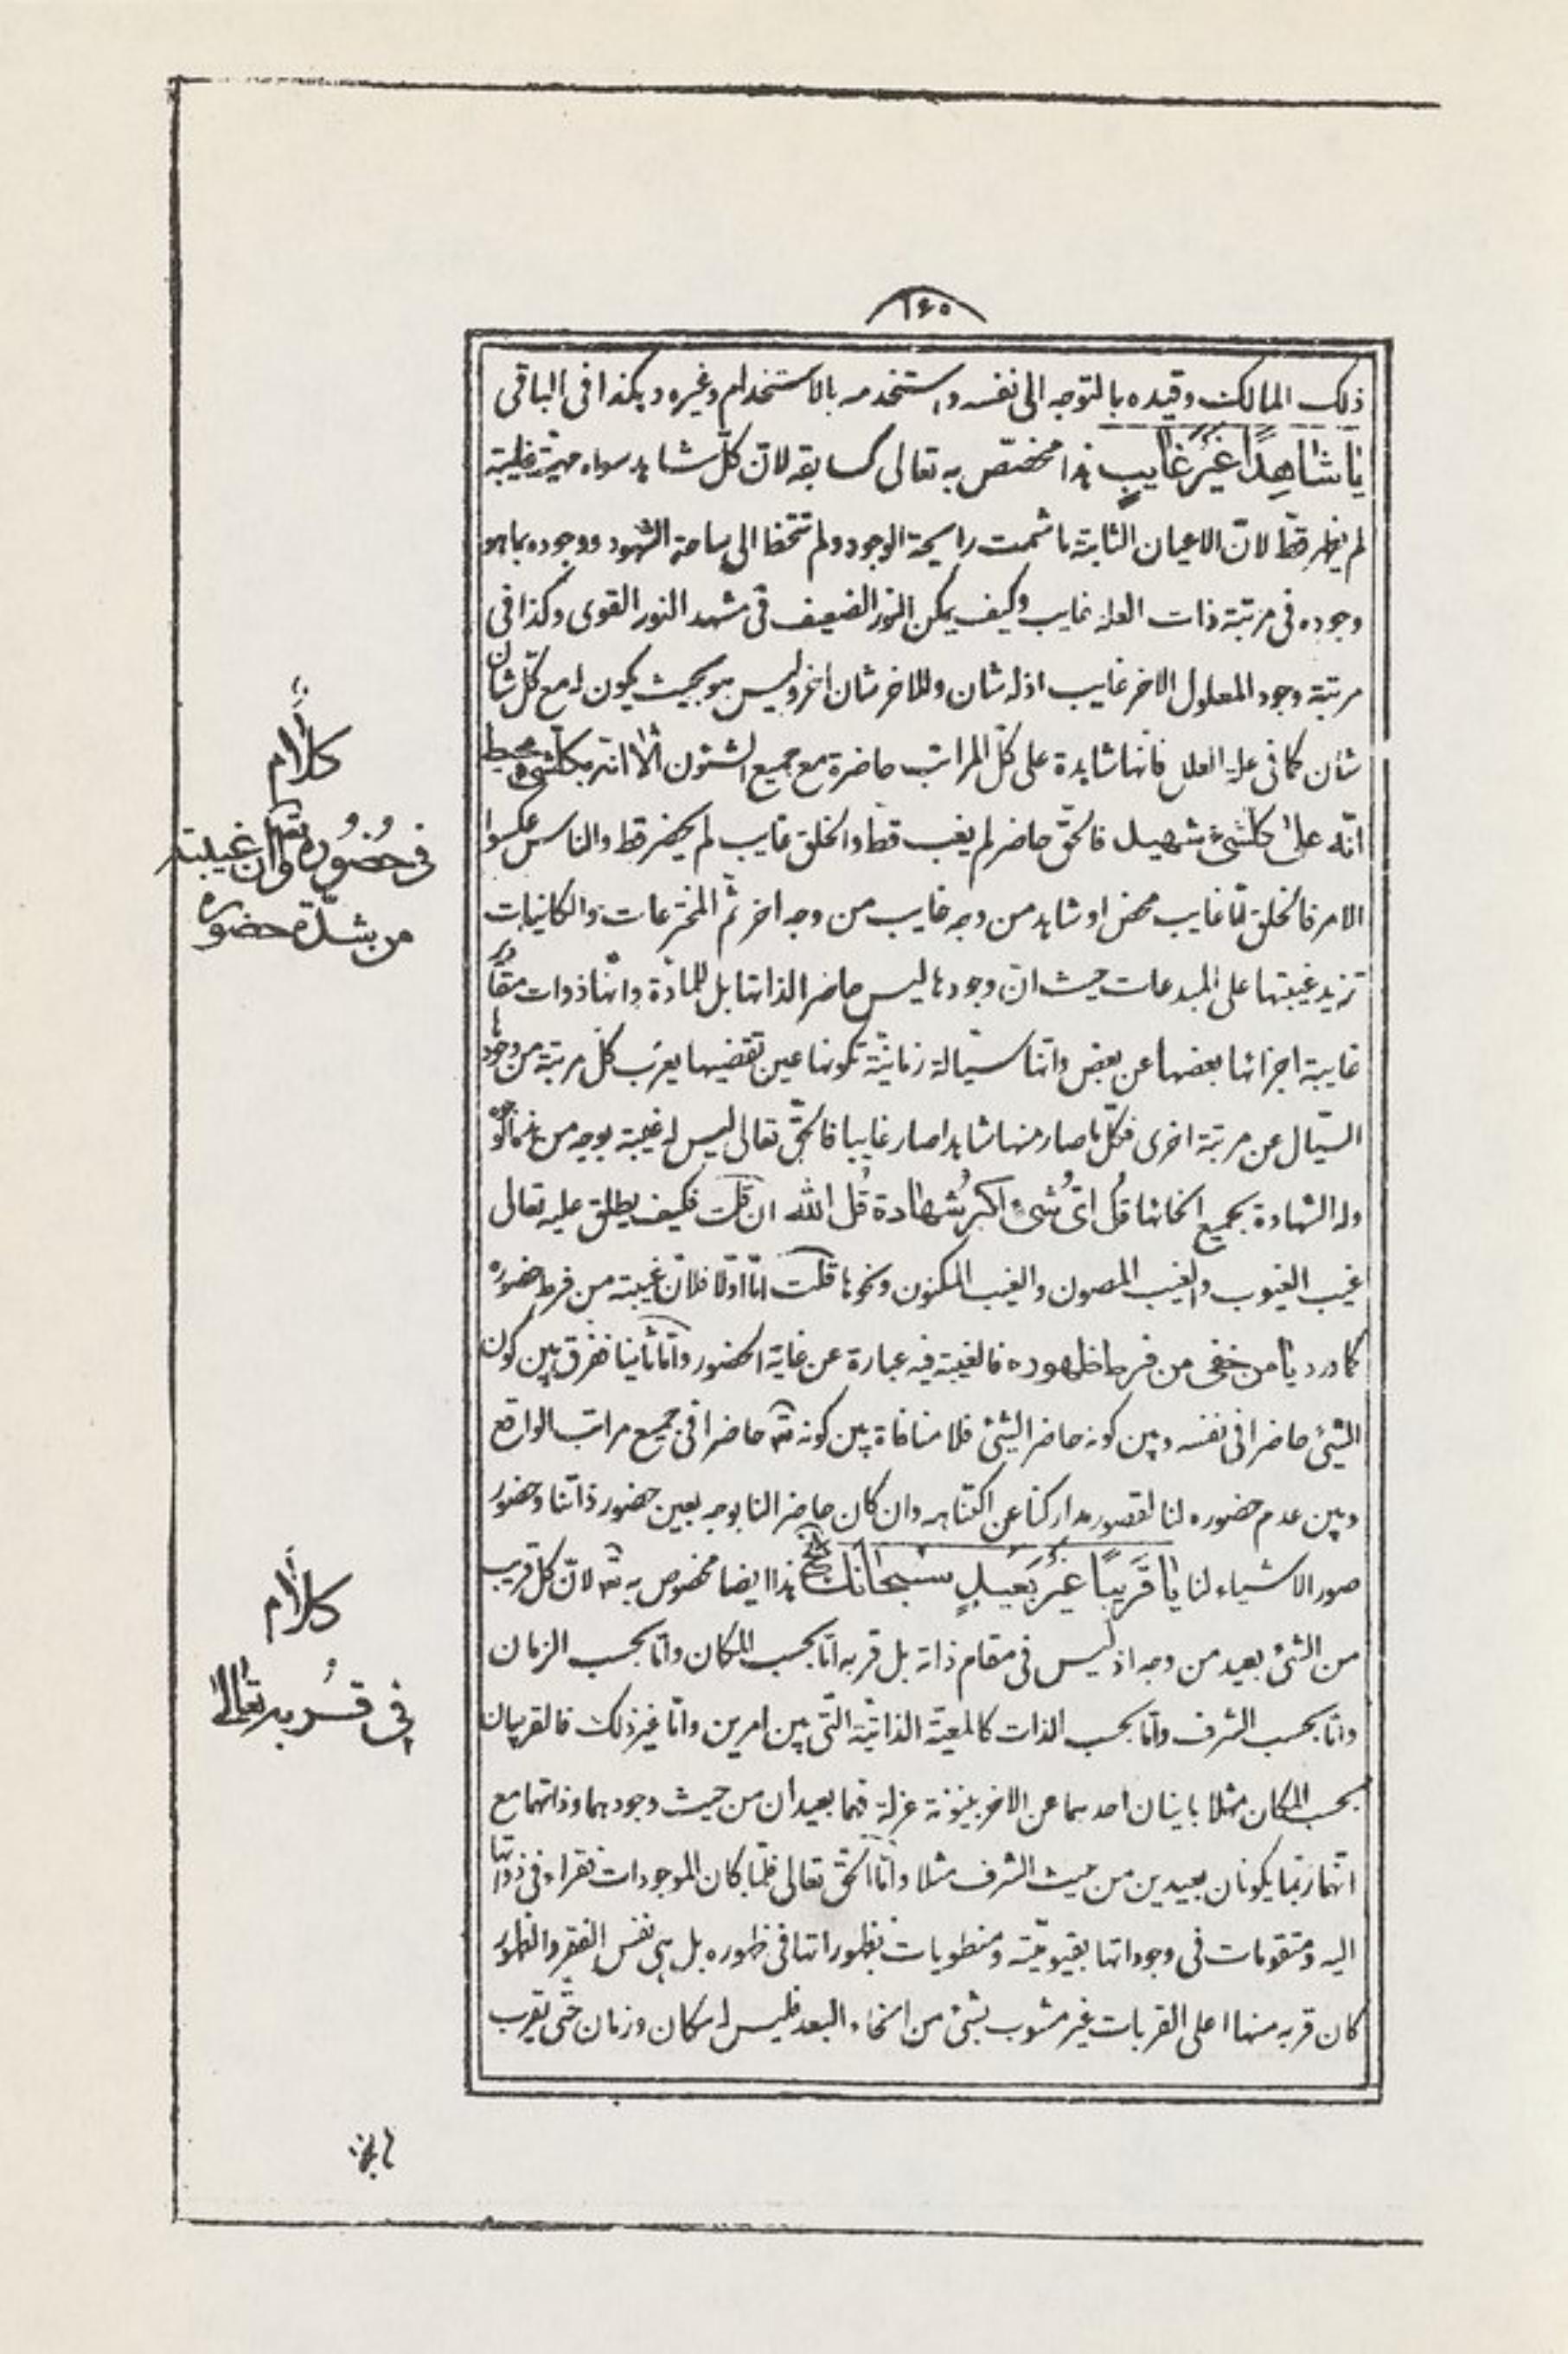 ١۶٠
ذلك المالك وقيده بالتوجه الى نفسه واستخدمه بالاستخدام وغيره وهكذا فى الباقى
يا شاهِدًا غَيْرَ غايبٍ هذا مختصّ به تعالى كسابقه لانّ كلّ شاهد سواه مهيّته غايبة
لم يظهر قطّ لانّ الاعيان الثابتة ما شمت رايحة الوجود ولم تتخطا الى ساحة الشهود ووجوده بما هو
وجوده فى مرتبة ذات العلة غايب وكيف يمكن النور الضعيف فى مشهد النور القوى وكذا فى
مرتبة وجود المعلول الاخر غايب اذ له شان وللاخر شان اخر وليس هو بحيث يكون له مع كلّ شان
شأن كما فى علة العلل فانها شاهدة على كلّ المراتب حاضرة مع جميع الشئون الا انّه بكلّشئ محيط
انّه على كلشئ شهيد فالحقّ حاضر لم يغب قط والخلق غايب لم يحضر قط والناس عكسوا
الامر فالخلق امّا غايب محض او شاهد من وجه غايب من وجه اخر ثمّ المخترعات والكائنات
تزيد غيبتها على المبدعات حيث انّ وجودها ليس حاضر الذاتها بل للمادّة وانّها ذوات مقادير
غايبة اجزائها بعضها عن بعض وانّها سيّالة زمانيّة تكونها عين تقضيها يعزب كلّ مرتبة من وجودها
السيّال عن مرتبة اخرى فكلّ ما صار منها شاهدا صار غايبا فالحقّ تعالى ليس له غيبة بوجه من هذه الوجوه
وله الشهادة بجميع انحائها قُل اىُّ شئٍ اكبرُ شهادة قُل الله ان قلت فكيف يطلق عليه تعالى
غيب الغيوب والغيب المصون والغيب المكنون ونحوها قلت امّا اوّلا فلانّ غيبته من فرط حضوره
كما ورد يا من خفى من فرط ظهوره فالغيبة فيه عبارة عن غاية الحضور وامّا ثانيا ففرق بين كون
الشئ حاضرا فى نفسه وبين كونه حاضر الشئ فلا منافاة بين كونه تع حاضرا فى جميع مراتب الواقع
وبين عدم حضوره لنا لقصور مداركنا عن اكتناهه وان كان حاضر النا بوجه بعين حضور ذاتنا وحضور
صور الاشياء لنا يا قَريبًا غَيْرَ بَعيدٍ سُبحانَكَ الخ هذا ايضا مخصوص به تع لانّ كلّ قريب
من الشئ بعيد من وجه اذ ليس فى مقام ذاته بل قربه امّا بحسب المكان وامّا بحسب الزمان
وامّا بحسب الشرف وامّا بحسب الذات كالمعية الذاتيّة الّتى بين امرين وامّا غير ذلك فالقريبان
بحسب المكان مثلا باينان احدهما عن الاخر بينونة عزلة فهما بعيدان من حيث وجودهما وذاتهما مع
انّهما ربّما يكونان بعيدين من حيث الشرف مثلا وامّا الحقّ تعالى فلمّا كان الموجودات فقراء فى ذواتها
اليه ومتقومات فى وجوداتها بقيوميّته ومنطويات بظهوراتها فى ظهوره بل هى نفس الفقر والظهور
كان قربه منها اعلى القربات غير مشوب بشئ من انحاء البعد فليس له مكان وزمان حتّى يقرب
كلام
فى حضوره تعالى وانّ غيبته
من شدّة حضوره
كلام
فى قُربه تعالى